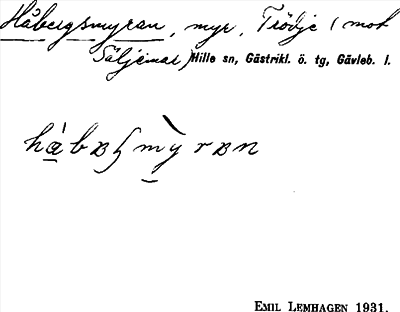 Håbergsmyran, myr, Trödje (mot
Säljemar) Hille sn, Gästrikl. ö. tg, Gävleb. l.
håbʙʒmyrʙn
EMIL LEMHAGEN 1931.